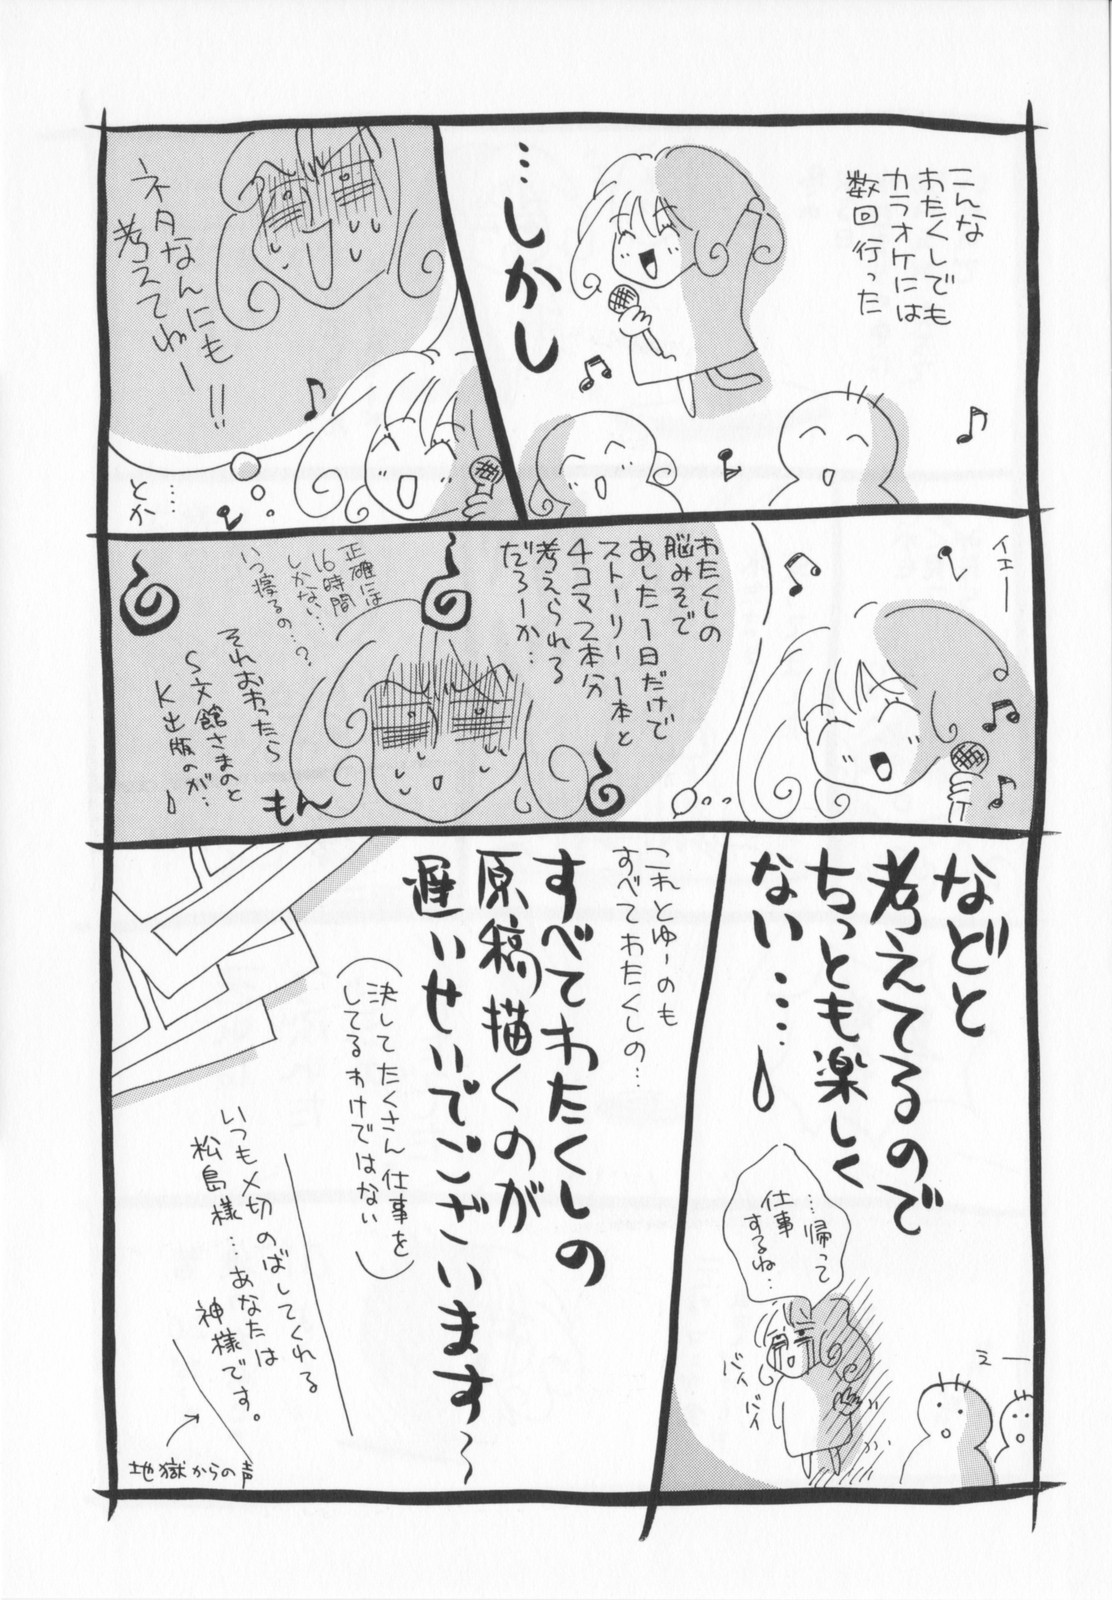 こんな
わたくしでも
カラオケには
数回行った
…しかし
ネタなんにも
考えてねー!!
…
とか
イェー
わたくしの
脳みそで
あした1日だけで
ストーリー1本と
4コマ2本分
考えられる
だろーか…
正確には
16時間
しかない…
いつ寝るの…?
それおわったら
S文館さまのと
K出版のが…
もん
などと
考えてるので
ちっとも楽しく
ない……
…帰って
仕事
するね…
バイ
バイ
えー
これとゆーのも
すべてわたくしの…
すべてわたくしの
原稿描くのが
遅いせいでございます〜
(決してたくさん仕事を
してるわけではない)
いつも〆切のばしてくれる
松島様…あなたは
神様です。
地獄からの声